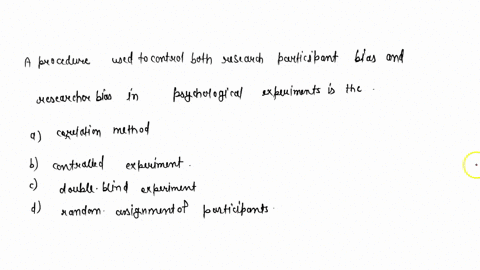 A procedure used to control both research participant bias and
researcher bias in psychological experiments is the .
a) correlation method
b) controlled experiment.
c) double-blind experiment
d) random assignment of participants.